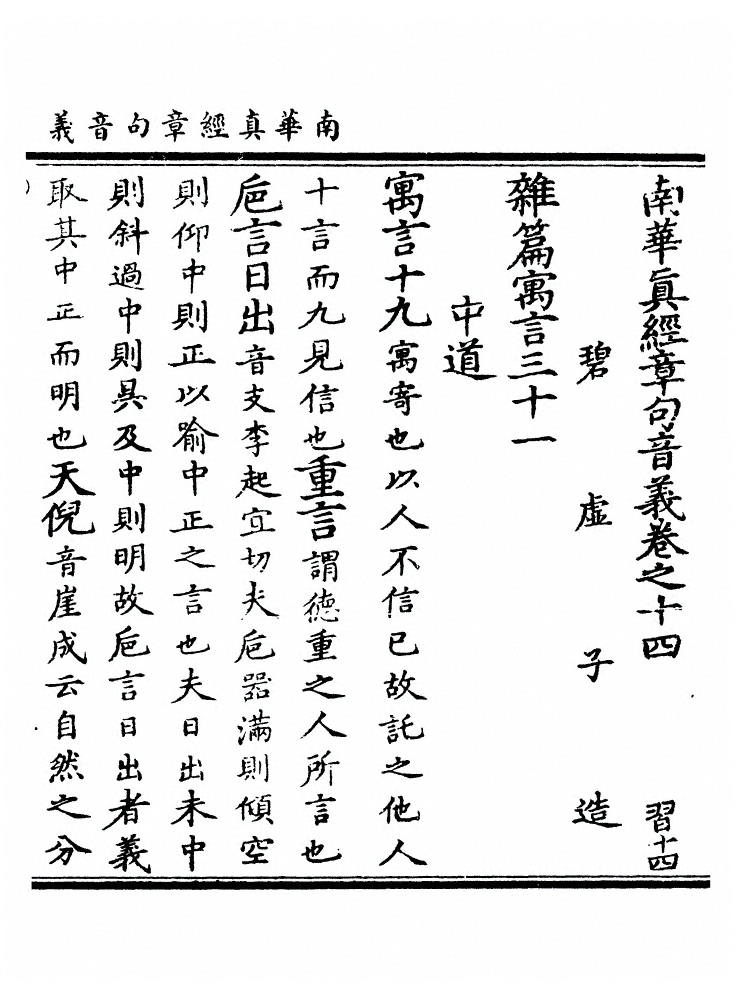 南華真經章句音義
南華眞經章句音義卷之十四 習十四
碧虛子造
雜篇寓言三十一
中道
寓言十九寓寄也以人不信已故託之他人
十言而九見信也重言謂德重之人所言也
巵言日出音支李起宜切夫巵器滿則傾空
則仰中則正以喻中正之言也夫日出未中
則斜過中則昃及中則明故巵言日出者義
取其中正而明也天倪音崖成云自然之分